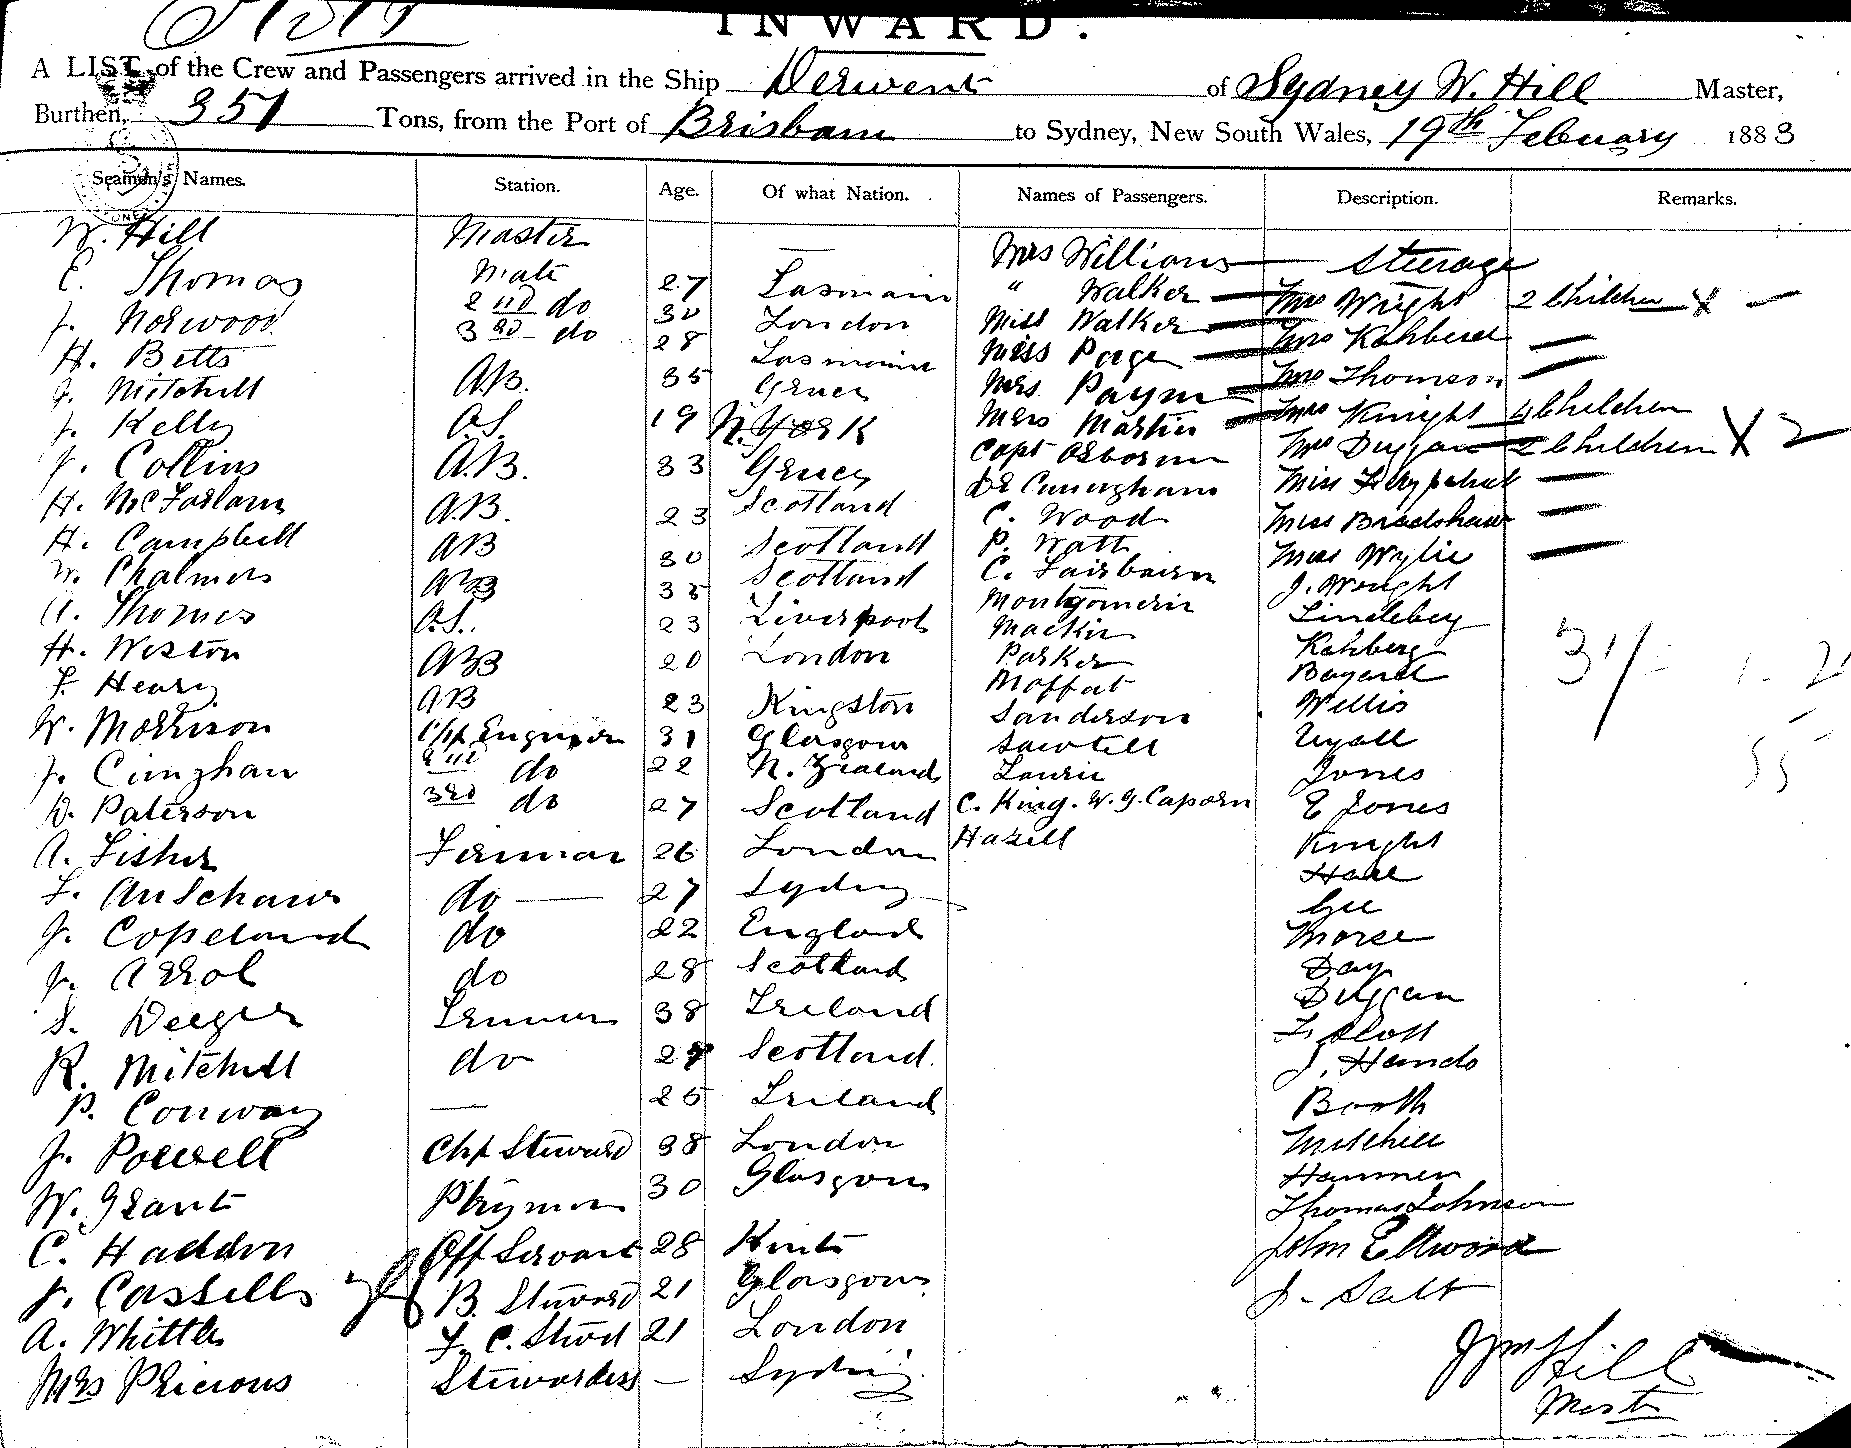 INWARD.
A LIST of the Crew and Passengers arrived in the Ship Derwent of Sydney W. Hill Master,
Burthen, 351 Tons, from the Port of Brisbane to Sydney, New South Wales, 19th February 1883
Seamen's Names. Station. Age. Of what Nation. Names of Passengers. Description. Remarks.
W. Hill Master — Mrs Williams Steerage
E. Thomas Mate 27 Tasmain " Walker Mrs Wright 2 Children X
J. Norwood 2nd do 30 London Miss Walker Mrs Kahberd
H. Betts 3rd do 28 Tasmania Miss Page Mrs Thomson
J. Mitchell A.B. 35 Greece Mrs Payne Mrs Knight 4 Children
J. Kelly O.S. 19 N. York Mrs Martin Mrs Duggan 2 Children X 2
J. Collins A.B. 33 Greece Capt Osborne Miss
H. McFarlane A.B. 23 Scotland Dr Cuningham Miss Bradshaw
H. Campbell AB 30 Scotland C. Wood Miss Wylie
W. Chalmers AB 35 Scotland P. Watt J. Wright
A. Thomes O.S. 23 Liverpool C. Fairbairn Lindeberg
H. Weston AB 20 London Montgomerie Kahberg
F. Henry AB 23 Kingston Mackie Bayard
W. Morrison Chf Engineer 31 Glasgow Parker Willis
J. Cunghan 2nd do 22 N. Zealand Moffat Uyall
D. Paterson 3rd do 27 Scotland Sanderson Jones
A. Fisher Fireman 26 London Sawtell E Jones
F. Anschaw do 27 Sydney Laurie Knight
J. Copeland do 22 England C. King. W. G. Caporn Hall
J. Arrol do 28 Scotland Hazell Gee
S. Deeger Trimmer 38 Ireland Morse
R. Mitchell do 27 Scotland Day
P. Conway — 25 Ireland Duggan
J. Powell Chf Steward 38 London F. Scott
W. Grant P'tryman 30 Glasgow J. Hands
C. Haddon Off Servant 28 Kent Booth
J. Cassells B. Steward 21 Glasgow Mitchell
A. Whittle F. C. Stwd 21 London Hammer
Mrs Pricious Stewardess — Sydney Thomas Johnson
John Ellwood
J. Salt
31/-
55
Wm Hill
Master